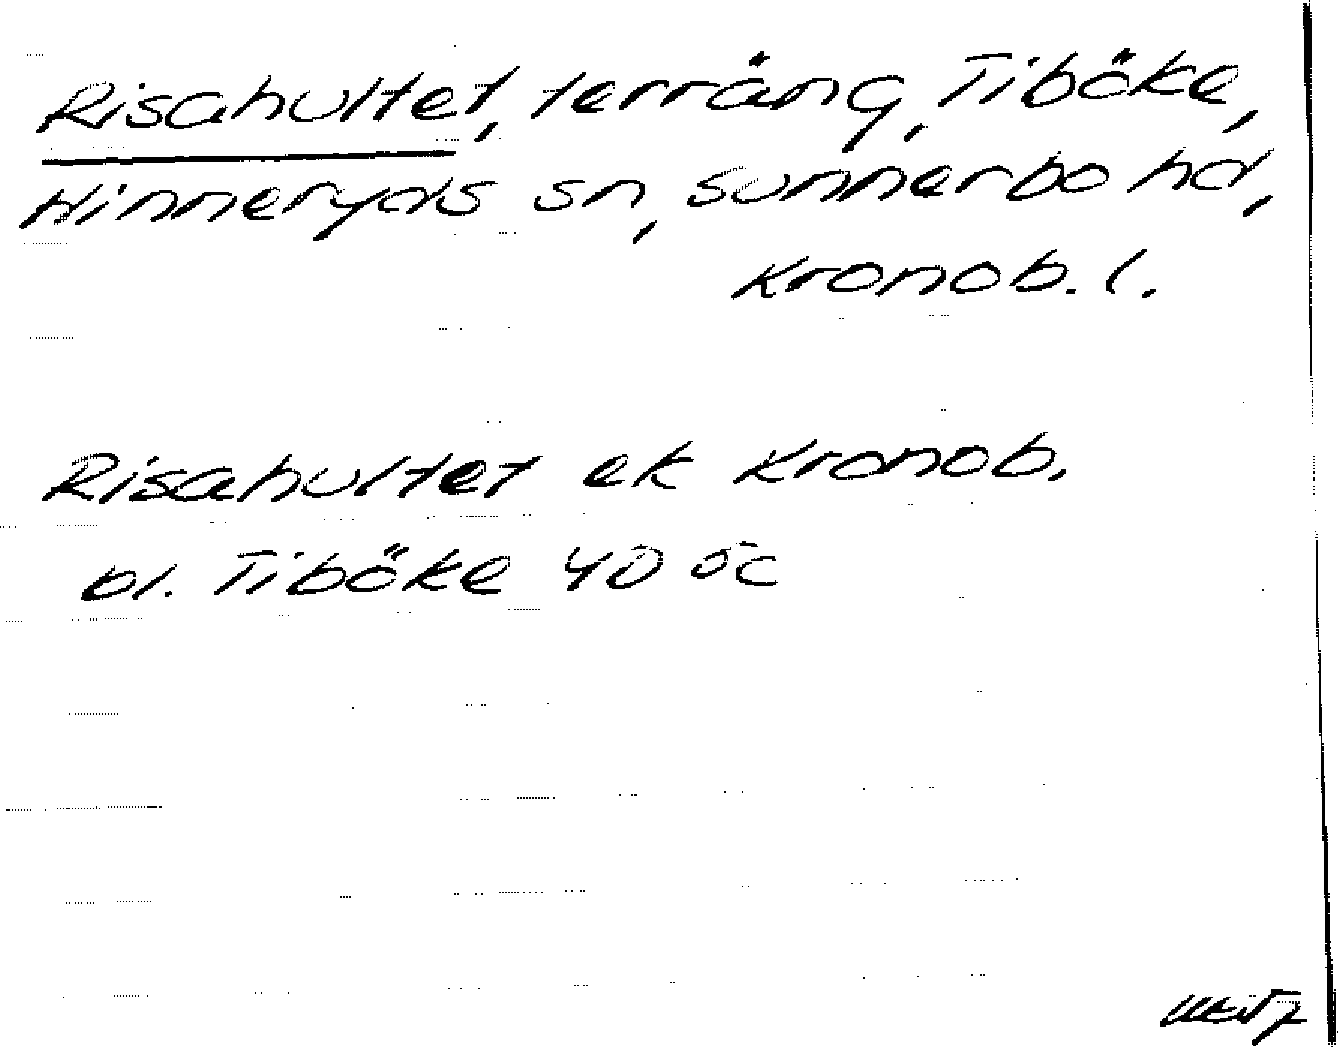 Risahultet, terräng, Tiböke,
Hinneryds sn, Sunnerbo hd,
Kronob. l.
Risahultet ek Kronob.
bl. Tiböke 4D 5c